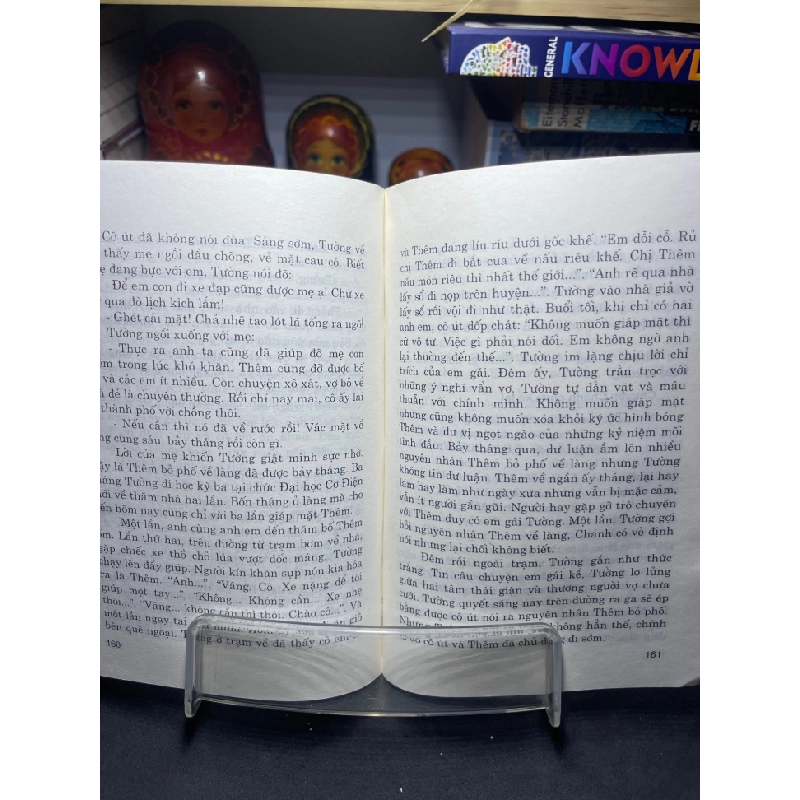 GENERAL
KNOWL
Cô út đã không nói đùa. Sáng sớm, Tường về
thấy mẹ ngồi đầu chõng, vẻ mặt cau có. Biết
đang bực với em, Tường nói đỡ:
Để em con đi xe đạp cũng được mẹ ạ! Chứ xe
qua đò lịch kịch lắm!
- Ghét cái mặt! Chả nhẽ tao lót lá tống ra ngõ!
Tường ngồi xuống với mẹ:
- Thực ra anh ta cũng đã giúp đỡ mẹ con
em trong lúc khó khăn. Thêm cũng đỡ được bố
và các em ít nhiều. Còn chuyện xô xát, vợ bỏ về
đẻ là chuyện thường. Rồi chỉ nay mai, cô ấy lại
thành phố với chồng thôi.
- Nếu cần thì nó đã về rước rồi! Vác mặt về
cũng sáu, bảy tháng rồi còn gì.
Lời của mẹ khiến Tường giật mình sực nhớ.
là Thêm bỏ phố về làng đã được bảy tháng. Ba
Tường đi học kỳ ba tại chức Đại học Cơ Điện
mới về thăm nhà hai lần. Bốn tháng ở làng mà cho
đến hôm nay cũng chỉ vài ba lần giáp mặt Thêm.
Một lần, anh cùng anh em đến thăm bố Thêm
ốm. Lần thứ hai, trên đường từ trạm bơm về nhà,
gặp chiếc xe thồ chở lúa vượt dốc máng. Tường
chạy lên đẩy giúp. Người kín khăn sụp nón kia hóa
ra là Thêm. "Anh...". "Vâng. Cô. Xe nặng để tôi
giúp một tay..". "Không... Không cần... Xe nhẹ
thôi...". "Vâng... không cần thì thôi. Chào cô..". Và
một lần; ngay tại
bên quê ngoại. ở trạm về đã thấy cô em
160
và Thêm đang líu ríu dưới gốc khế. "Em dỗi cỗ. Rủ
chị Thêm đi bắt cua về nấu riêu khế. Chị Thêm
nấu món riêu thì nhất thế giới...". "Anh rẽ qua nhà
lấy sổ đi họp trên huyện...". Tường vào nhà giả vờ
lấy sổ rồi vội đi như thật. Buổi tối, khi chỉ có hai
anh em, cô út đốp chát: "Không muốn giáp mặt thì
cứ vô tư. Việc gì phải nói dối. Em không ngờ anh
lại thuồng đến thế...". Tường im lặng chịu lời chỉ
trích của em gái. Đêm ấy, Tường trằn trọc với
những ý nghĩ vẩn vơ, Tường tự dằn vặt và mâu
thuẫn với chính mình. Không muốn giáp mặt
nhưng cũng không muốn xóa khỏi ký ức hình bóng
Thêm và dư vị ngọt ngào của những kỷ niệm mối
tình đầu. Bảy tháng qua, dư luận ầm lên nhiều
nguyên nhân Thêm bỏ phố về làng nhưng Tường
không tin dư luận. Thêm về ngần ấy tháng, lại hay
lam hay làm như ngày xưa nhưng vẫn bị mặc cảm,
vẫn ít người gần gũi. Người hay gặp gỡ trò chuyện
với Thêm duy có em gái Tường. Một lần, Tường gợi
hỏi nguyên nhân Thêm về làng, Chánh có vẻ định
nói nhưng lại chối không biết.
Đêm rồi ngoài trạm, Tường gần như thức
trắng. Tin câu chuyện em gái kể, Tường lo lắng
giữa hai tâm thái giận và thương người vợ chưa
cưới. Tường quyết sáng nay trên đường ra ga sẽ ép
bằng được cô út nói ra nguyên nhân Thêm bỏ phố.
Nhưng không hẳn thế, chính
cô út và Thêm đã chủ động đi sớm.
161